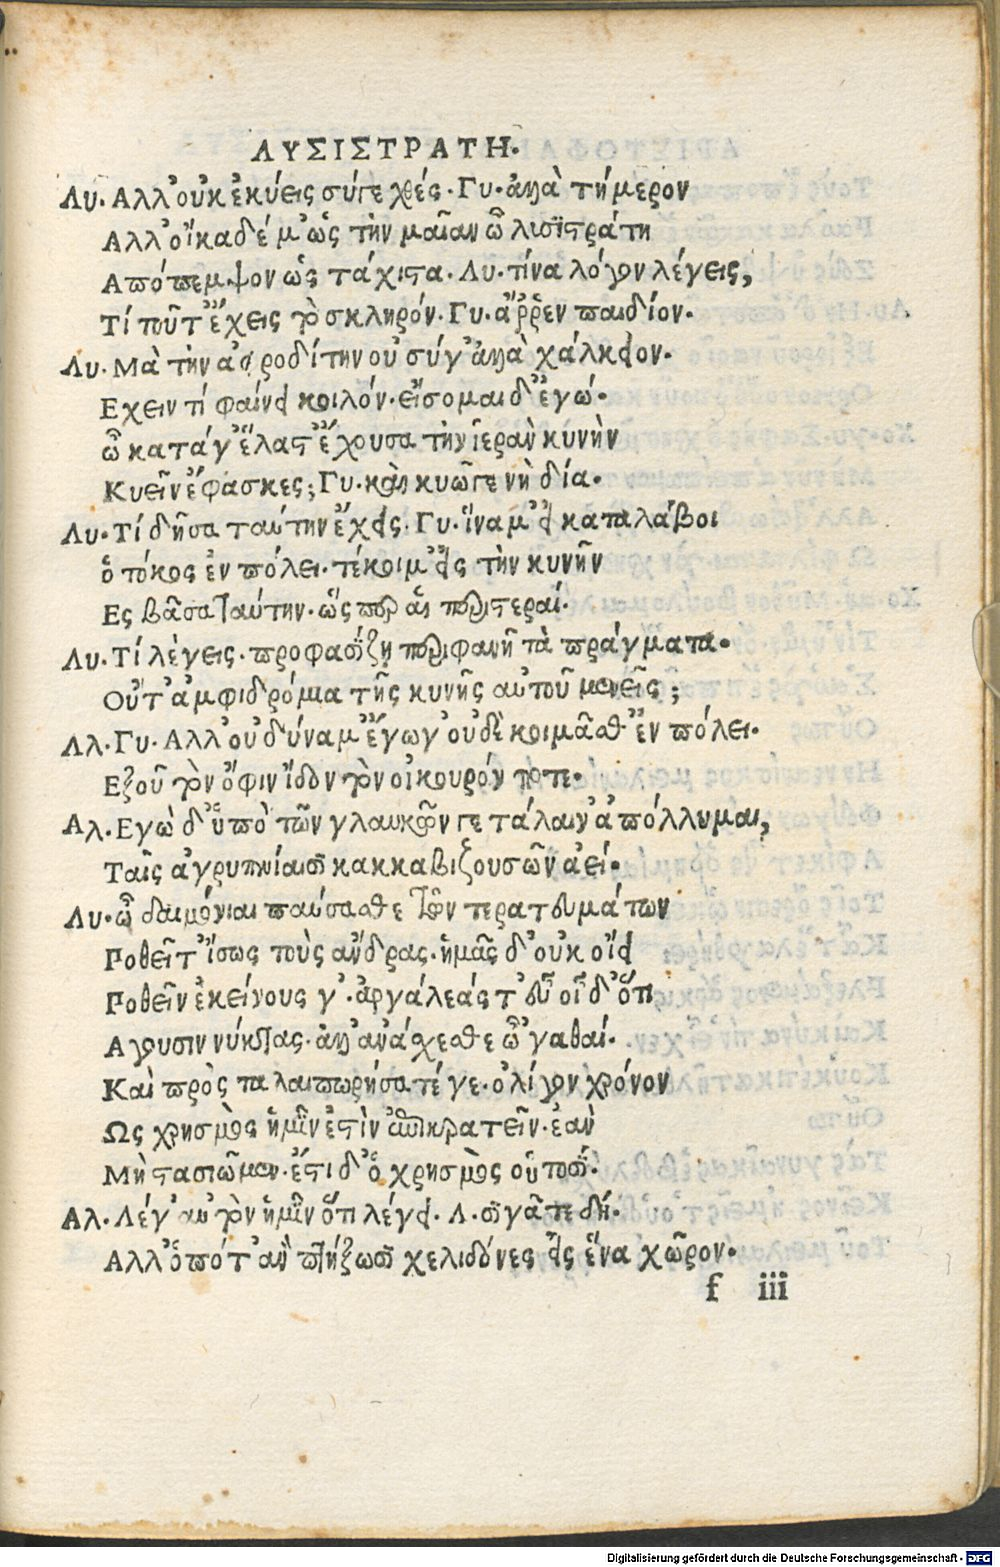 ΛΥΣΙΣΤΡΑΤΗ.
Λυ. Αλλ' οὐκ ἐκύεις σύγε χθές. Γυ. ἀλλὰ τήμερον
Αλλ' οἴκαδέ μ' ὡς τὴν μαῖαν ὦ λισϊστράτη
Απόπεμψον ὡς τάχιστα. Λυ. τίνα λόγον λέγεις,
Τί τοῦτ' ἔχεις τὸ σκληρόν. Γυ. ἄῤῥεν παιδίον.
Λυ. Μὰ τὴν ἀφροδίτην οὐ σύγ' ἀλλὰ χάλκειον.
Εχειν τί φαίνει κοιλόν. εἴσομαι δ' ἐγώ.
ὦ κατάγ' ἔλαστ' ἔχουσα τὴν ἱερὰν κυνὴν
Κυεῖν ἔφασκες; Γυ. καὶ κυῶ γε νὴ δία.
Λυ. Τί δῆσα ταύτην ἔχεις. Γυ. ἵνα μ' εἰ καταλάβοι
ὁ τόκος ἐν πόλει. τέκοιμ' εἰς τὴν κυνῆν
Ες βᾶσα ταύτην. ὥσπερ αἱ περιστεραί.
Λυ. Τί λέγεις. προφασίζῃ περιφανῆ τὰ πράγματα.
Οὔτ' ἀμφιδρόμια τῆς κυνῆς αὐτοῦ μενεῖς;
Λλ. Γυ. Αλλ' οὐ δύναμ' ἔγωγ' οὐδὲ κοιμᾶσθ' ἐν πόλει.
Εξοῦ τὸν ὄφιν ἴδον τὸν οἰκουρόν ποτε.
Αλ. Εγὼ δ' ὑπὸ τῶν γλαυκῶν γε τάλαιν' ἀπόλλυμαι,
Ταῖς ἀγρυπνίαισι κακκαβιζουσῶν ἀεί.
Λυ. ὦ δαιμόνιαι παύσασθε τῶν τερατευμάτων
Ροθεῖτ' ἴσως τοὺς ἄνδρας. ἡμᾶς δ' οὐκ οἴει
Ροθεῖν ἐκείνους γ'. ἀργάλεάς τ' εὖ οἶδ' ὅτι
Αγουσιν νύκτας. ἀλλ' ἀνάχεσθε ὦ 'γαθαί.
Καὶ πρὸς ταλαιπωρήσατέ γε. ὀλίγον χρόνον
Ως χρησμὸς ἡμῖν ἐστὶν ἐπικρατεῖν. ἐὰν
Μὴ στασιῶμεν. ἔστι δ' ὁ χρησμὸς οὑτοσί.
Αλ. Λέγ' αὐτὸν ἡμῖν ὅτι λέγει. Λ. σιγᾶτε δή.
Αλλ' ὁπότ' ἂν πτήξωσι χελιδόνες εἰς ἕνα χῶρον.
f iii
Digitalisierung gefördert durch die Deutsche Forschungsgemeinschaft - DFG